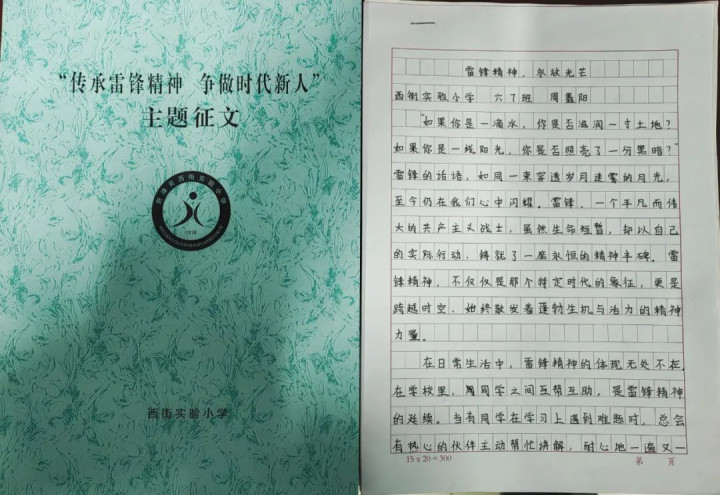 “传承雷锋精神 争做时代新人”
主题征文
1918
西街实验小学
雷锋精神，永放光芒
西街实验小学 六7班 周嘉阳
“如果你是一滴水，你是否滋润一寸土地？
如果你是一线阳光，你是否照亮了一分黑暗？”
雷锋的话语，如同一束穿透岁月迷雾的月光，
至今仍在我们心中闪耀。雷锋，一个平凡而伟
大的共产主义战士，虽然生命短暂，却以自己
的实际行动，铸就了一座永恒的精神丰碑。雷
锋精神，不仅仅是那个特定时代的象征，更是
跨越时空，始终散发着蓬勃生机与活力的精神
力量。
在日常生活中，雷锋精神的体现无处不在。
在学校里，同学之间互帮互助，是雷锋精神
的延续。当有同学在学习上遇到难题时，总会
有热心的伙伴主动帮忙讲解，耐心地一遍又一
15 x 20 = 300
第 页